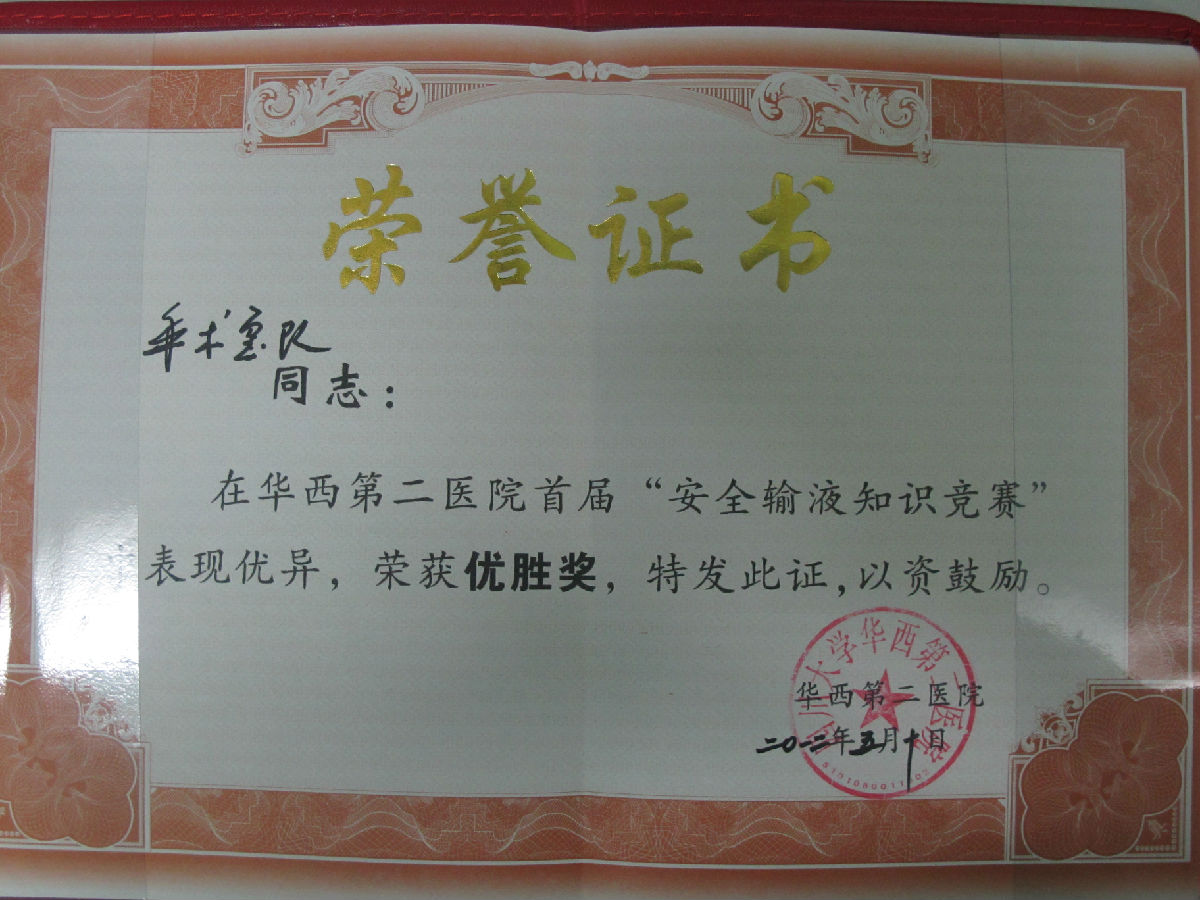 荣誉证书
手术室队
同志：
在华西第二医院首届“安全输液知识竞赛”
表现优异，荣获优胜奖，特发此证，以资鼓励。
四川大学华西第二医院
华西第二医院
二〇一二年五月十日